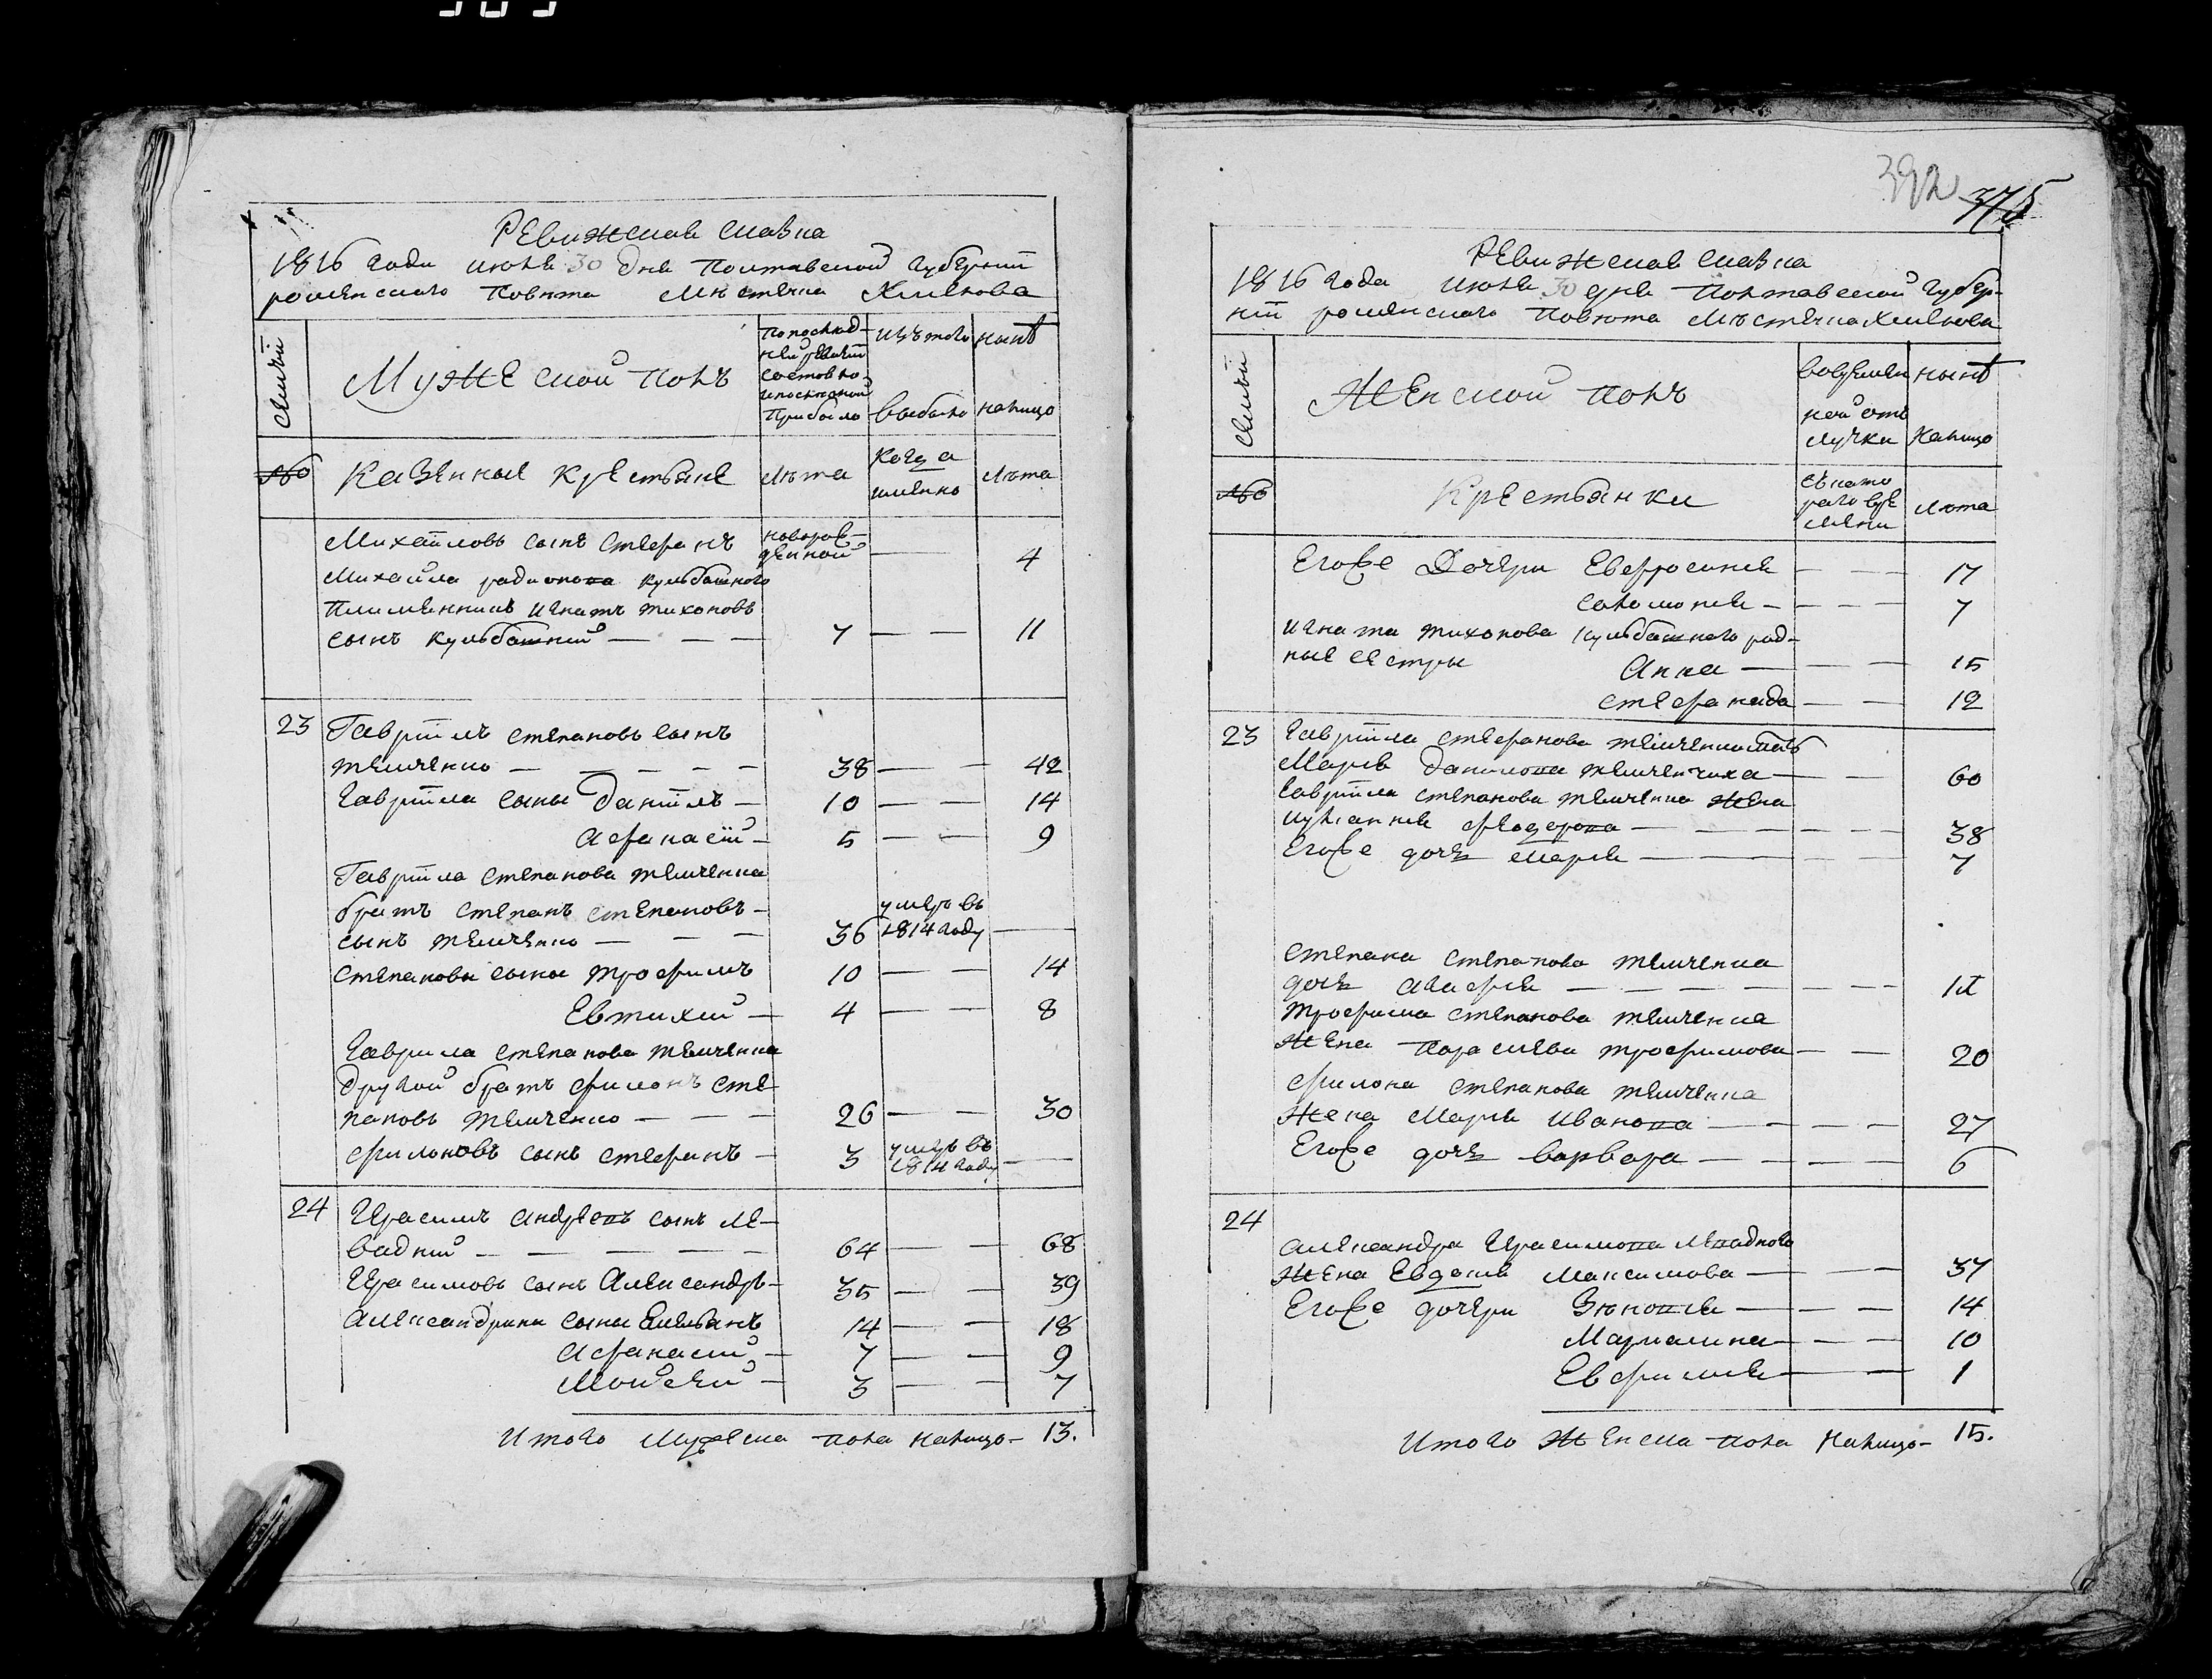 Ревижская сказка
1816 года июня 30 дня Полтавской Губернїи
роменского повѣта Мѣстечка Хмелова
Семьи
Мужеской полъ
по послѣд-
ней ревизїи
состояло
и послѣ оной
прибыло
изъ того
выбыло
нынѣ
налицо
№
Казенные крестьяне
лѣта
когда
именно
лѣта
Михайловъ сынъ Стефанъ
новорож-
денной
4
Михайла радионова кульбашного
племенникъ игнатъ тихоновъ
сынъ кульбашний — — — 7 — — 11
23 Гаврїилъ степановъ сынъ
темченко — — — — — 38 — — 42
Гаврїила сыны данїилъ — 10 — — 14
афанасїй — 5 — — 9
Гаврїила степанова темченка
братъ степанъ степановъ —
умеръ въ
сынъ темченко — — — 36 1814 году —
степановы сыны трофимъ 10 — — 14
Евтихий — 4 — — 8
Гаврила степанова темченка
другой братъ филонъ сте
пановъ темченко — — — 26 — — 30
филоновъ сынъ стефанъ — 3 умеръ въ
1814 году —
24 Герасимъ андреевъ сынъ ле-
вадний — — — — — 64 — — 68
Герасимовъ сынъ Александръ — 35 — — 39
Александрини сыны Емельянъ 14 — — 18
Афанасий — 7 — — 9
Мойсей — 3 — — 7
Итого мужеска пола налицо — 13.
392
375
Ревижская сказка
1816 года июня 30 дня Полтавской Губер-
нїи роменского повѣта Мѣстечка Хмелова
Семьи
Женской полъ
во времен
ной отъ
лучки
нынѣ
налицо
№
Крестьянки
съ кото
раго вре
мени
лѣта
Егоже Дочери Евфросиния — — — 17
соломония — — — — 7
игната тихонова кульбашнего род-
ные сестры Анна — — — 15
стефанида — — 12
23 Гаврїила стефанова темченка мать
Марья данилова темченчиха — — 60
Гаврїила степанова темченка жена
иулиания федорова — — — — — 38
Егоже дочь марья — — — — — 7
степана степанова темченка
дочь агафия — — — — — —
трофима степанова темченка
жена параскева трофимова — — 20
филона степанова темченка
жена Марья Иванова — — — — 27
Егоже дочь варвара — — — — — 6
24
александра Герасимова левадного
жена Евдокия Максимова — — — 37
Егоже дочери Зѣновия — — — 14
Мариамна — — — 10
Евфимия — — 1
Итого женска пола налицо — 15.